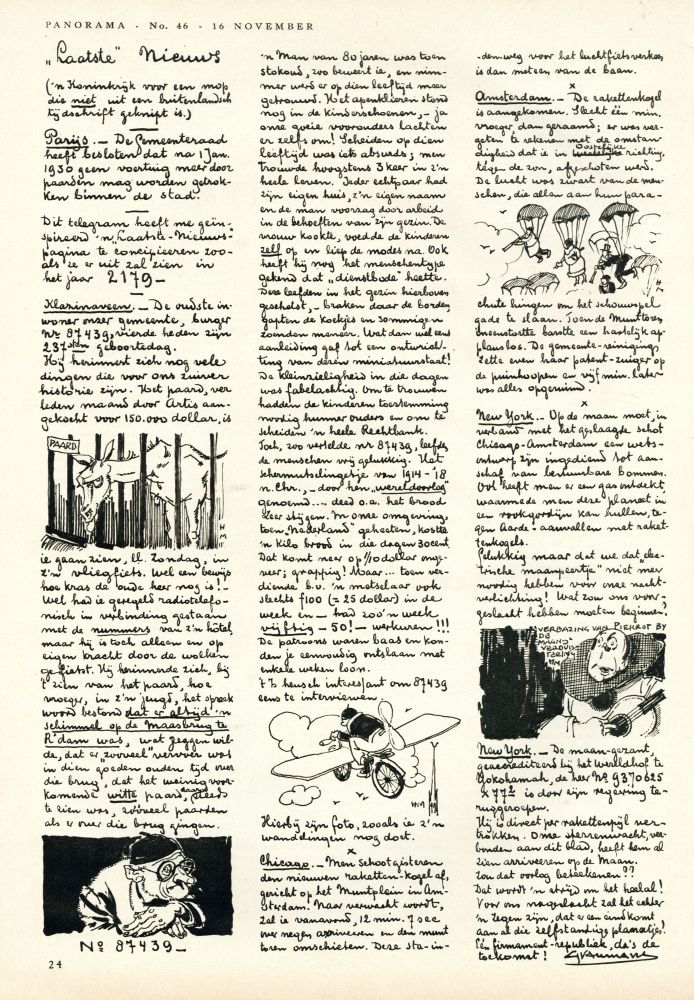 PANORAMA - No. 46 - 16 NOVEMBER
„Laatste" Nieuws
('n Koninkrijk voor een mop
die niet uit een buitenlandsch
tijdschrift geknipt is.)
Parijs. — De Gemeenteraad
heeft besloten dat na 1 Jan.
1930 geen voertuig meer door
paarden mag worden getrok-
ken binnen de stad.
Dit telegram heeft me geïn-
spireerd 'n „Laatste-Nieuws"-
pagina te concipieeren zoo-
als ze er uit zal zien in
het jaar 2179—
Klazinaveen. — De oudste in-
woner onzer gemeente, burger
No 87439, vierde heden zijn
237sten geboortedag.
Hij herinnert zich nog vele
dingen die voor ons zuiver
historie zijn. Het paard, ver-
leden maand door Artis aan-
gekocht voor 150.000 dollar, is
PAARD
H M
ie gaan zien, ll. Zondag, in
z'n vliegfiets. Wel een bewijs
hoe kras de oude heer nog is! —
Wel had ie geregeld radiotelefo-
nisch in verbinding gestaan
met de nummers van z'n hôtel,
maar hij is toch alleen en op
eigen kracht door de wolken
gefietst. Hij herinnerde zich, bij
't zien van het paard, hoe
vroeger, in z'n jeugd, het spreek
woord bestond dat er altijd 'n
schimmel op de Maasbrug te
R'dam was, wat zeggen wil-
de, dat er „zooveel" vervoer was
in dien goeden ouden tijd over
die brug, dat het weinig voor-
komende witte paard, steeds
te zien was, zóóveel paarden
als er over die brug gingen.
No 87439—
24
'n Man van 80 jaren was toen
stokoud, zoo beweert ie, en nim-
mer werd er op dien leeftijd meer
getrouwd. Het apenklieren stond
nog in de kinderschoenen, — ja
onze goeie voorouders lachten
er zelfs om! Scheiden op dien
leeftijd was iets absurds; men
trouwde hoogstens 3 keer in z'n
heele leven. Ieder echtpaar had
zijn eigen huis, z'n eigen naam
en de man voorzag door arbeid
in de behoeften van zijn gezin. De
vrouw kookte, voedde de kinderen
zelf op en liep de modes na. Ook
heeft hij nog het menschentype
gekend dat „dienstbode" heette.
Deze leefden in het gezin hierboven
geschetst, — braken daar de borden,
gapten de koekjes en sommigen
zoenden meneer. Wat dan wel eens
aanleiding gaf tot een ontwricht-
ting van dezen miniatuurstaat!
De kleinzieligheid in die dagen
was fabelachtig. Om te trouwen
hadden de kinderen toestemming
noodig hunner ouders en om te
scheiden 'n heele Rechtbank.
Toch, zoo vertelde nr 87439, leefden
de menschen vrij gelukkig. Het
schermutselingetje van 1914-'18
n. Chr., — door hen „wereldoorlog"
genoemd... deed o.a. het brood
zeer stijgen. In onze omgeving,
toen „Nederland" geheeten, kostte
'n kilo brood in die dagen 30 cent.
Dat komt neer op 1/10 dollar onge-
veer; grappig! Maar... toen ver-
diende b.v. 'n metselaar ook
slechts f100 (= 25 dollar) in de
week en — had zoo'n week
vijftig — 50! — werkuren!!!
De patroons waren baas en kon-
den je eenvoudig ontslaan met
enkele weken loon.
't Is heusch interessant om 87439
eens te interviewen.
HM
Hierbij zijn foto, zooals ie z'n
wanddingen nog doet.
x
Chicago. — Men schoot gisteren
den nieuwen raketten-kogel af,
gericht op het Muntplein in Am-
sterdam! Naar verwacht wordt,
zal ie vanavond, 12 min. 7 sec
over negen arriveeren en den munt
toren omschieten. Deze sta-in-
-den-weg voor het luchtfietsverkeer
is dan meteen van de baan.
x
Amsterdam. — De rakettenkogel
is aangekomen. Slecht één min.
vroeger, dan geraamd; er was ver-
geten te rekenen met de omstan-
digheid dat ie in Oostelijke richting,
tégen de zon, afgeschoten werd.
De lucht was zwart van de men-
schen, die allen aan hun para-
chute hingen om het schouwspel
gade te slaan. Toen de Munttoren
ineenstortte barstte een hartelijk ap-
plaus los. De gemeente-reiniging
zette even haar patent-zuiger op
de puinhoopen en vijf min. later
was alles opgeruimd.
x
New York. — Op de maan moet, in
verband met het geslaagde schot
Chicago-Amsterdam een wets-
ontwerp zijn ingediend tot aan-
schaf van bestuurbare bommen.
Ook heeft men er een gas ontdekt,
waarmede men deze planeet in
een rookgordijn kan hullen, te-
gen Aarde-aanvallen met raket-
tenkogels.
Gelukkig maar dat we dat „elec-
trische maanpeertje" niet meer
noodig hebben voor onze nacht-
verlichting! Wat zou ons voor-
geslacht hebben moeten beginnen?
VERBAZING VAN PIERROT BY
DE
MAAND
VERDUIS-
TERING
HM
New York. — De maan-gezant,
geaccrediteerd bij het Wereldhof te
Yokohamah, de heer No 9370625
x 77² is door zijn regeering te-
ruggeroepen.
Hij is direct per rakettenpijl ver-
trokken. Onze sterrenwacht, ver-
bonden aan dit blad, heeft hem al
zien arriveeren op de Maan.
Zou dat oorlog beteekenen??
Dat wordt 'n strijd om het heelal!
Voor ons nageslacht zal het echter
'n zegen zijn, dat er een eind komt
aan al die zelfstandige planeetjes!
Eén firmament-republiek, da's de
toekomst!